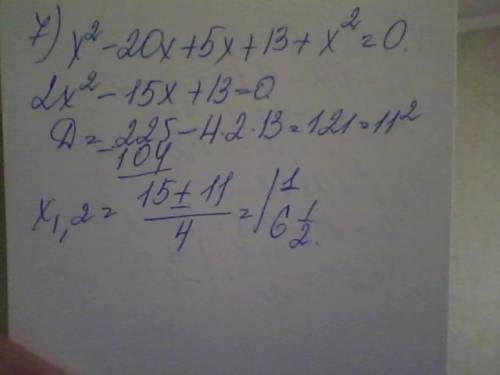 7) x² - 20x + 5x + 13 + x² = 0.
2x² - 15x + 13 = 0
D = 225 - 4·2·13 = 121 = 11²
-104
x₁,₂ = (15 ± 11)/4 = | 1
6 1/2.